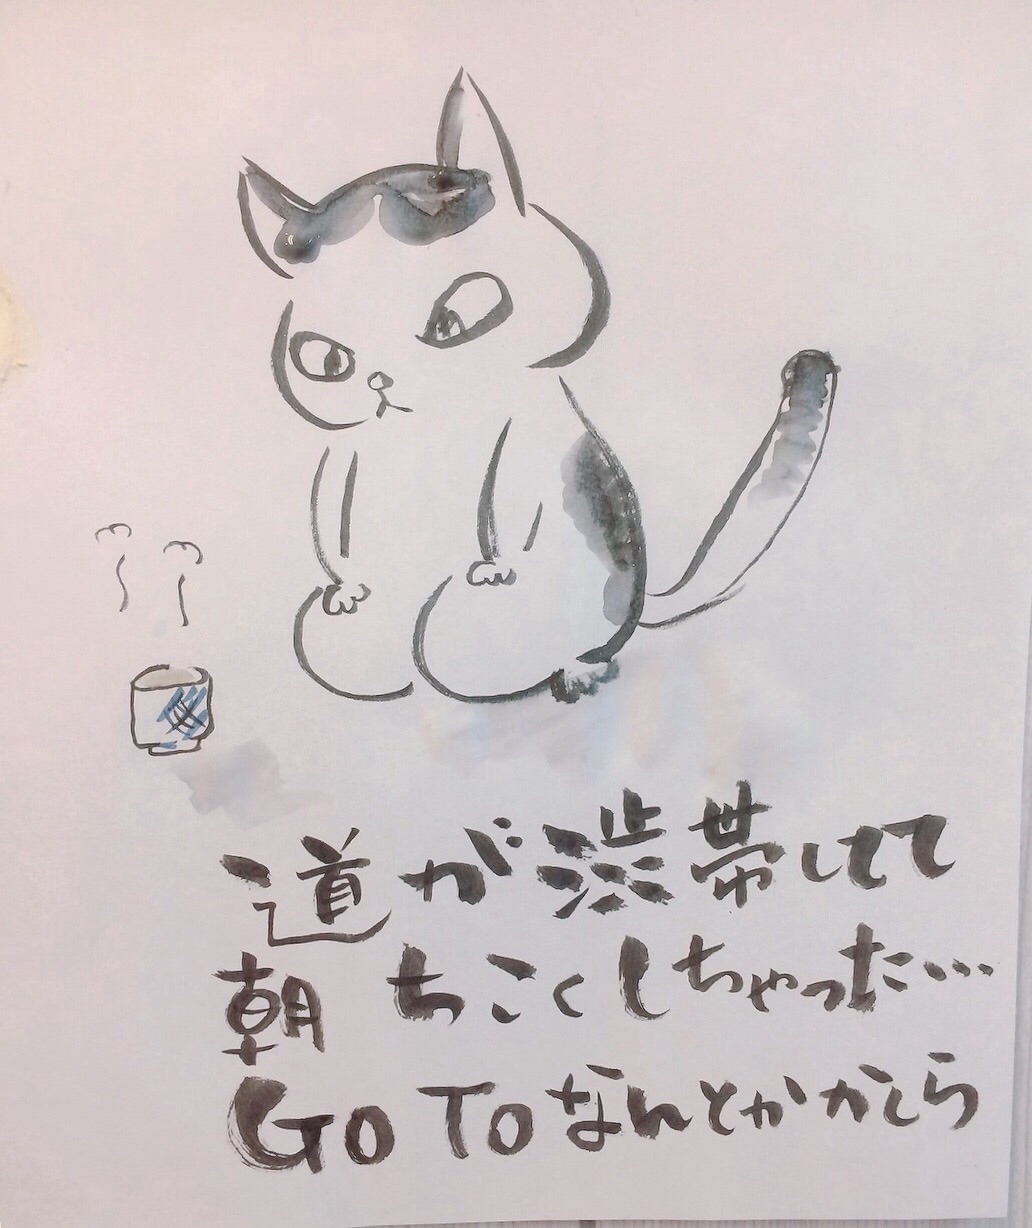 道が渋帯してて
朝ちこくしちゃった…
GO TOなんとかかしら